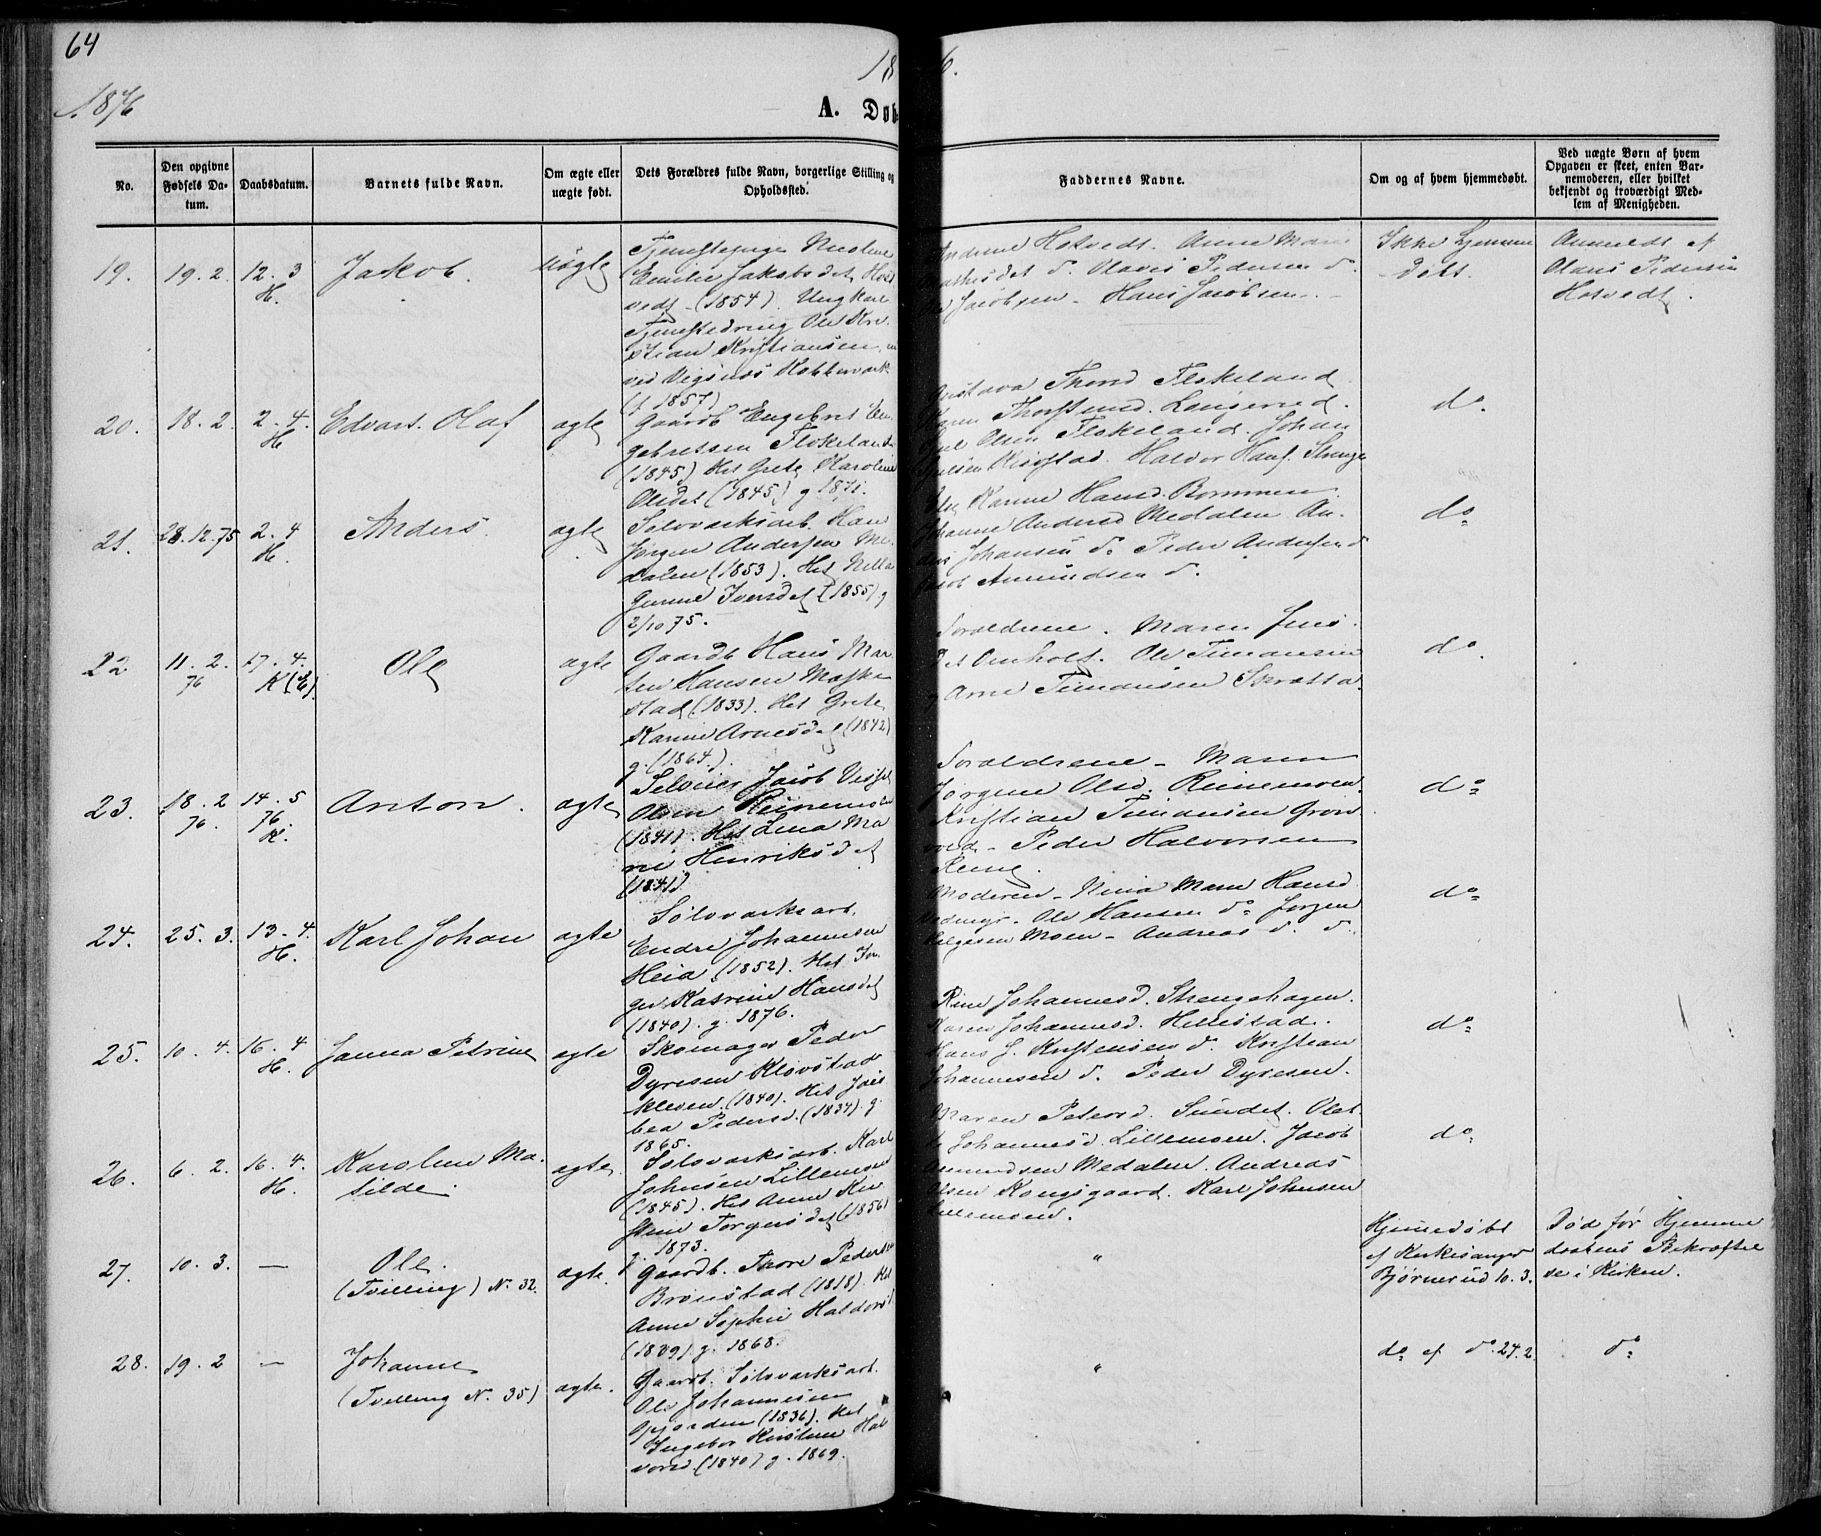 64
1876
18
6.
A. Døb
No.
Den opgivne Fødsels Da-
tum.
Daabsdatum.
Barnets fulde Navn.
Om ægte eller
uægte født.
Dets Forældres fulde Navn, borgerlige Stilling og
Opholdssted.
Faddernes Navne.
Om og af hvem hjemmedøbt.
Ved uægte Børn af hvem
Opgaven er skeet, enten Bar-
nemoderen, eller hvilket
bekjendt og troværdigt Med-
lem af Menigheden.
19. 19. 2. 12. 3 H. Jakob. uægte
Tjenestepige
Emilie Jakobsdat Hot
vedt (1854). Ungkarl
Ole Kri-
stian Kristiansen,
ved Vigsnes Kobberværk
(f. 1857)
Hotvedt. Anne Marie
d. Olavis Pedersen d.
Jacobsen - Hans Jacobsen.
Ikke hjemme
døbt.
Anmeldt af
Olaus Pedersen
Hotvedt.
20. 18. 2. 2. 4. H. Edvart Olaf ægte
Gaardb. Engebret En-
gebretsen Flokeland
(1845) Het Grete Karoline
Olsdat (1845) g 1871.
Thorsd Flokeland
Karen Thorstensd.
Olsen Flokeland. Johan
Halvor Hans.
do.
21. 28. 12. 75 2. 4 H. Anders. ægte
Sølvværksarb. Hans
Jørgen Andersen Me-
dalen (1853). Het
Gunne Iversdat (1855) g
2/10 75.
Karine Hansd. Bommen
Johanne Andersd Medalen An-
ders Johansen do Peder Andersen d
Jacob Amundsen d.
do
22. 11. 2. 76 17. 4. K (E). Ole ægte
Gaardb Hans Mar-
tin Hansen Maste
stad (1833). Het Grete
Karine Arnesdat (1842)
g. (1864).
Forældrene. Maren Jens-
dat Omholt. Ole Timansen
og Arne Timansen Skratta.
do.
23. 18. 2 76. 14. 5 76. K. Anton. ægte
Selveier Jacob
Olsen Reinemoen
(1841). Het Lena Ma
rie Henriksdat
(1841)
Forældrene - Maren
Jørgine Olsd. Reinemoen.
Kristian Timansen Gron
vold - Peder Halvorsen
do
24. 25. 3. 13. 4. H. Karl Johan ægte
Sølvværksarb.
Endre Johannesen
Heia (1852). Het In-
ger Katrine Hansdat
(1840). g. 1876.
Moderen - Maren Hansd
Ole Hansen do Jørgen
Helgesen Moen - Andreas d. d.
do
25. 10. 4. 16. 4 H. Janna Petrine ægte
Skomager Peder
Dyresen Klovstad
kleven (1840). Het
Pedersd. (1834). g.
1865.
Johannesd. Strengehagen.
Karen Johannesd. Hillestad.
Hans J. Kristensen d. Kristian
Johannesen d. Peder Dyresen.
do
26. 6. 2. 16. 4. H. Karoline Ma-
tilde. ægte
Sølvværksarb. Karl
Johnsen Lillemoen
(1845). Het Anne Kir
stine Torgersdat (1856)
g. 1873.
Maren Petersd. Sundet. Olet
Johannesd. Lillemoen. Jacob
Amundsen Medalen. Andreas
Olsen Kongsgaard. Karl Johnsen
Lillemoen.
do.
27. 10. 3. — Ole.
(Tvilling) No. 32. ægte.
Gaardb. Thore Pedersen
Brønstad (1818). Het
Anne Sophie Haldorsd
(1829) g. 1868.
"
Hjemmedøbt
af Kirkesanger
Bjørnerud 10. 3.
Død før Hjemme
daabens Bekræftel
se i Kirken.
28. 19. 2 — Johanne
(Tvilling No. 35) ægte.
Gaardb. Sølvværksarb.
Ole Johannesen
(1836). Het
Ingebor Kirstine Hal
vorsd. (1840) g. 1869.
"
do af do 24. 2.
do